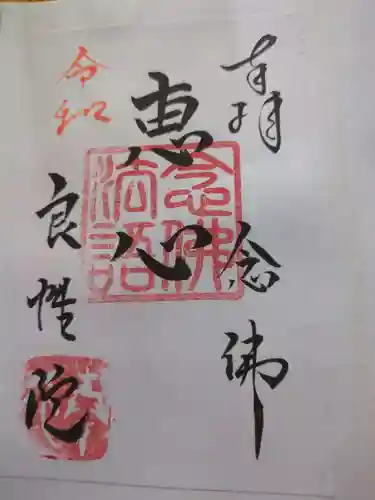 奉拝
念佛
恵心
念佛法語
令和
良性院